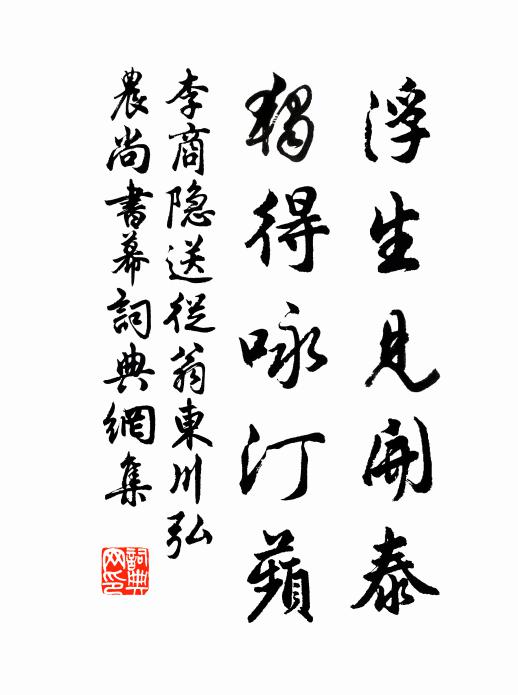 浮生見開泰
獨得咏汀蘋
李商隐送從翁東川弘
農尚書幕詞典網集
詞典网印